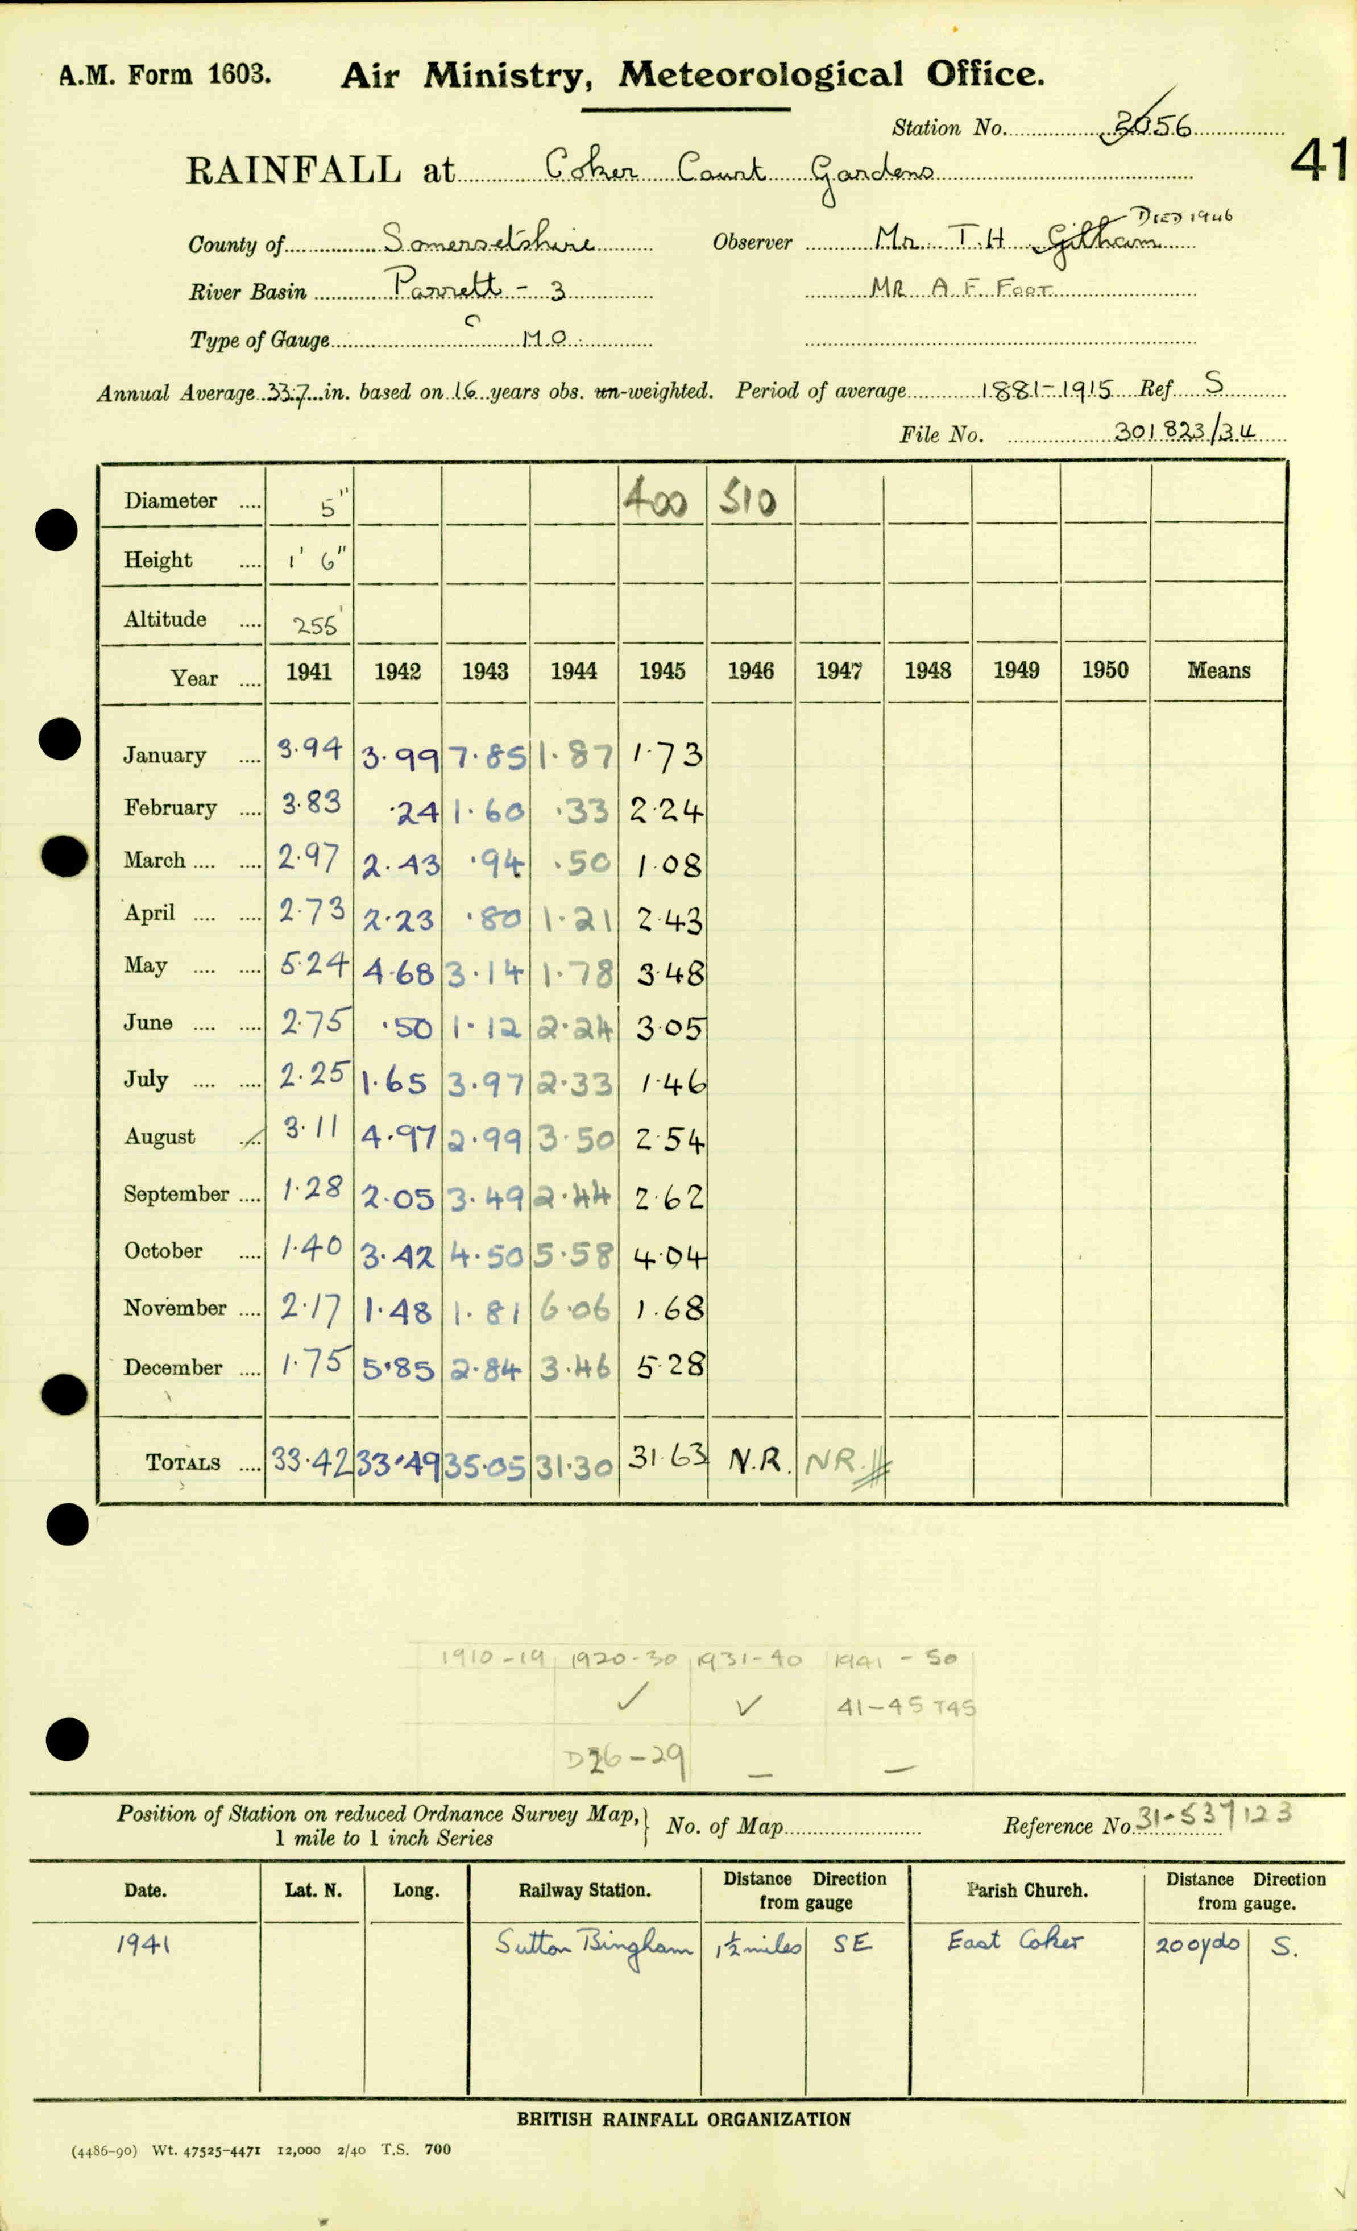 A.M. Form 1603. Air Ministry, Meteorological Office.
Station No. 2056
41
RAINFALL at Coker Court Gardens
DIED 1946
County of Somersetshire Observer Mr. T.H. Gilham
River Basin Parrett - 3 MR A F FOOT
Type of Gauge M.O.
Annual Average 33.7 in. based on 16 years obs. un-weighted. Period of average 1881-1915 Ref S
File No. 301823/34
Diameter .... 5" 400 510
Height .... 1' 6"
Altitude .... 255'
Year .... 1941 1942 1943 1944 1945 1946 1947 1948 1949 1950 Means
January .... 3.94 3.99 7.85 1.87 1.73
February .... 3.83 .24 1.60 .33 2.24
March .... .... 2.97 2.43 .94 .50 1.08
April .... .... 2.73 2.23 .80 1.21 2.43
May .... .... 5.24 4.68 3.14 1.78 3.48
June .... .... 2.75 .50 1.12 2.24 3.05
July .... .... 2.25 1.65 3.97 2.33 1.46
August .... 3.11 4.97 2.99 3.50 2.54
September .... 1.28 2.05 3.49 2.44 2.62
October .... 1.40 3.42 4.50 5.58 4.04
November .... 2.17 1.48 1.81 6.06 1.68
December .... 1.75 5.85 2.84 3.46 5.28
TOTALS .... 33.42 33.49 35.05 31.30 31.63 N.R. N.R.
1910-19 1920-30 1931-40 1941-50
✓ ✓ 41-45 T45
D26-29 — —
Position of Station on reduced Ordnance Survey Map, } No. of Map Reference No. 31-537123
1 mile to 1 inch Series
Date. Lat. N. Long. Railway Station. Distance Direction from gauge Parish Church. Distance Direction from gauge.
1941 Sutton Bingham 1½ miles SE East Coker 200yds S.
BRITISH RAINFALL ORGANIZATION
(4486-90) Wt. 47525-4471 12,000 2/40 T.S. 700